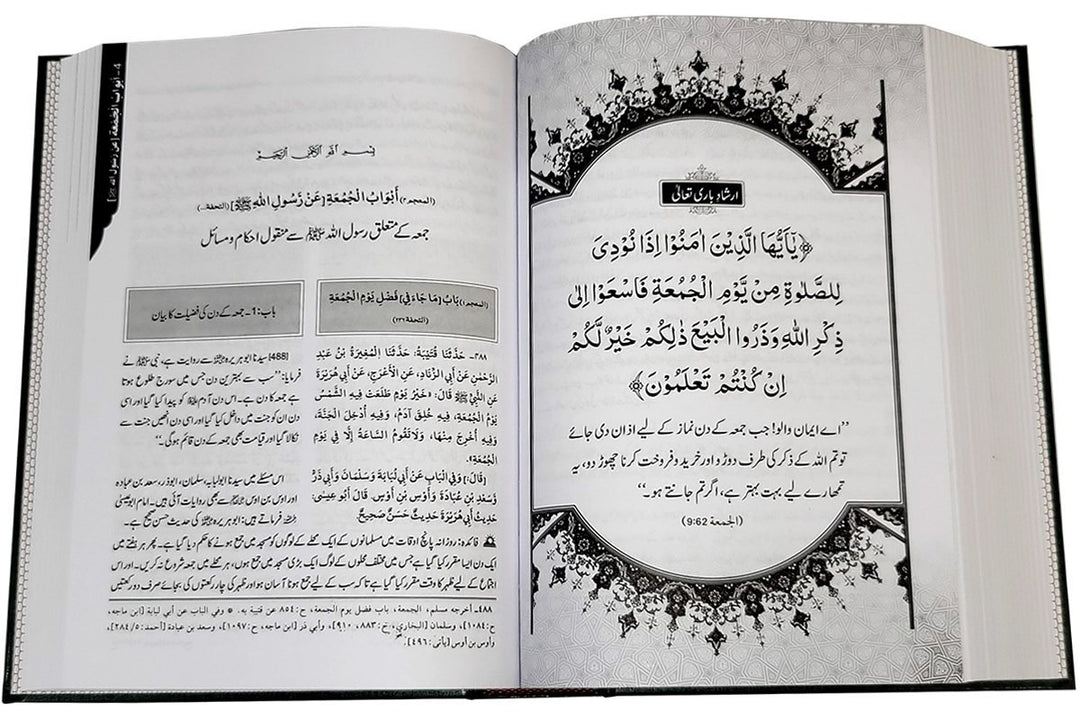 ارشاد باری تعالیٰ
﴿يٰۤاَيُّهَا الَّذِيْنَ اٰمَنُوْۤا اِذَا نُوْدِيَ
لِلصَّلٰوةِ مِنْ يَّوْمِ الْجُمُعَةِ فَاسْعَوْا اِلٰى
ذِكْرِ اللّٰهِ وَذَرُوا الْبَيْعَ ذٰلِكُمْ خَيْرٌ لَّكُمْ
اِنْ كُنْتُمْ تَعْلَمُوْنَ﴾
’’اے ایمان والو! جب جمعہ کے دن نماز کے لیے اذان دی جائے
تو تم اللہ کے ذکر کی طرف دوڑو اور خرید و فروخت کرنا چھوڑ دو، یہ
تمھارے لیے بہت بہتر ہے، اگر تم جانتے ہو۔‘‘
(الجمعة 9:62)
4- أبواب الجمعة [عن رسول الله ﷺ]
بسم الله الرحمن الرحيم
(المعجم ٢) أَبْوَابُ الْجُمُعَةِ [عَنْ رَسُولِ اللهِ ﷺ] (التحفة...)
جمعہ کے متعلق رسول اللہ ﷺ سے منقول احکام و مسائل
(المعجم ١) بَابُ [مَا جَاءَ فِي] فَضْلِ يَوْمِ الْجُمُعَةِ
(التحفة ٢٣٦)
٤٨٨- حَدَّثَنَا قُتَيْبَةُ: حَدَّثَنَا الْمُغِيرَةُ بْنُ عَبْدِ
الرَّحْمٰنِ عَنْ أَبِي الزِّنَادِ، عَنِ الْأَعْرَجِ، عَنْ أَبِي هُرَيْرَةَ
عَنِ النَّبِيِّ ﷺ قَالَ: «خَيْرُ يَوْمٍ طَلَعَتْ فِيهِ الشَّمْسُ
يَوْمُ الْجُمُعَةِ، فِيهِ خُلِقَ آدَمُ، وَفِيهِ أُدْخِلَ الْجَنَّةَ،
وَفِيهِ أُخْرِجَ مِنْهَا، وَلَا تَقُومُ السَّاعَةُ إِلَّا فِي يَوْمِ
الْجُمُعَةِ».
[قَالَ:] وَفِي الْبَابِ عَنْ أَبِي لُبَابَةَ وَسَلْمَانَ وَأَبِي ذَرٍّ
وَسَعْدِ بْنِ عُبَادَةَ وَأَوْسِ بْنِ أَوْسٍ. قَالَ أَبُو عِيسٰى:
حَدِيثُ أَبِي هُرَيْرَةَ حَدِيثٌ حَسَنٌ صَحِيحٌ.
باب: 1- جمعہ کے دن کی فضیلت کا بیان
[488] سیدنا ابو ہریرہ سے روایت ہے، نبی ﷺ نے
فرمایا: ’’سب سے بہترین دن جس میں سورج طلوع ہوتا
ہے جمعہ کا دن ہے۔ اس دن آدم کو پیدا کیا گیا اور اسی
دن ان کو جنت میں داخل کیا گیا اور اسی دن انھیں جنت سے
نکالا گیا اور قیامت بھی جمعہ کے دن قائم ہوگی۔‘‘
اس مسئلے میں سیدنا ابولبابہ، سلمان، ابوذر، سعد بن عبادہ
اور اوس بن اوس سے بھی روایات آئی ہیں۔ امام ابوعیسیٰ
فرماتے ہیں: ابو ہریرہ کی حدیث حسن صحیح ہے۔
فائدہ: روزانہ پانچ اوقات میں مسلمانوں کے ایک محلے کے لوگوں کو مسجد میں جمع ہونے کا حکم دیا گیا ہے۔ پھر ہر ہفتے میں
ایک دن ایسا مقرر کیا گیا ہے جس میں مختلف محلوں کے لوگ ایک بڑی مسجد میں جمع ہوں، ہر محلے میں جمعہ شروع نہ کریں۔ اور اس
اجتماع کے لیے ظہر کا وقت مقرر کیا گیا ہے تاکہ سب کے لیے جمع ہونا آسان ہو اور ظہر کی چار رکعتوں کی بجائے صرف دو رکعتیں
٤٨٨- أخرجه مسلم، الجمعة، باب فضل يوم الجمعة، ح: ٨٥٤ عن قتيبة به. * وفي الباب عن أبي لبابة [ابن ماجه،
ح: ١٠٨٤]، وسلمان [البخاري، ح: ٨٨٣، ٩١٠]، وأبي ذر [ابن ماجه، ح: ١٠٩٧]، وسعد بن عبادة [أحمد: ٢٨٤/٥]،
وأوس بن أوس [يأتي: ٤٩٦].